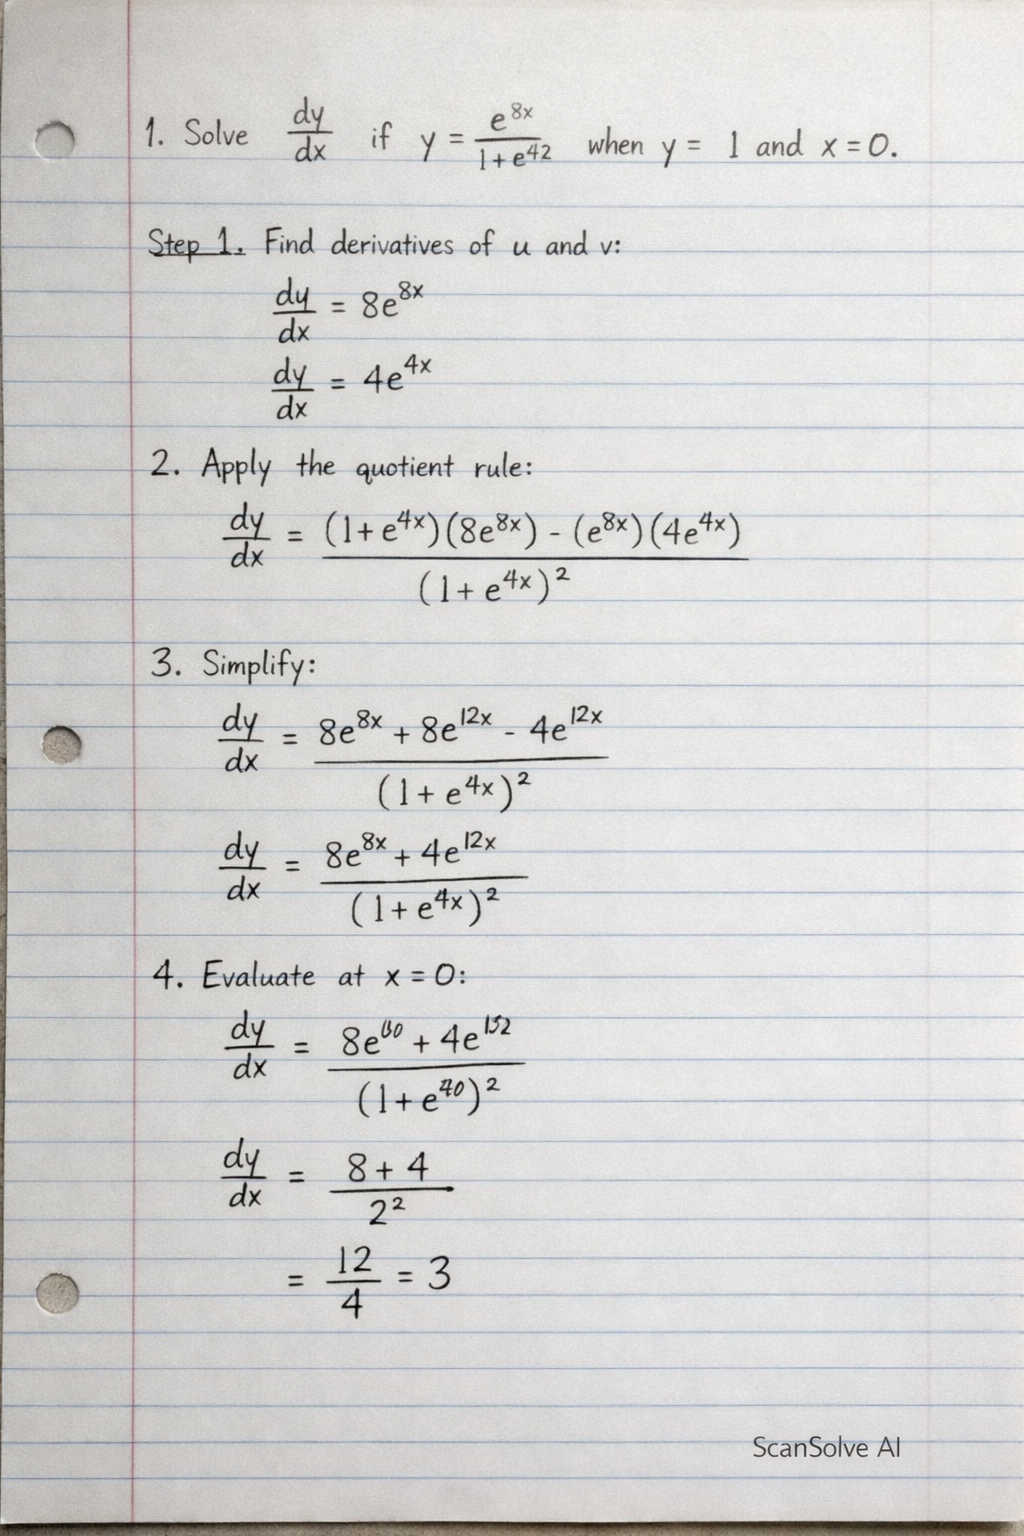 1. Solve dy/dx if y = e^8x / 1 + e^42 when y = 1 and x = 0.
Step 1. Find derivatives of u and v:
dy/dx = 8e^8x
dy/dx = 4e^4x
2. Apply the quotient rule:
dy/dx = (1 + e^4x)(8e^8x) - (e^8x)(4e^4x) / (1 + e^4x)^2
3. Simplify:
dy/dx = 8e^8x + 8e^12x - 4e^12x / (1 + e^4x)^2
dy/dx = 8e^8x + 4e^12x / (1 + e^4x)^2
4. Evaluate at x = 0:
dy/dx = 8e + 4e / (1 + e^40)^2
dy/dx = 8 + 4 / 2^2
= 12/4 = 3
ScanSolve AI